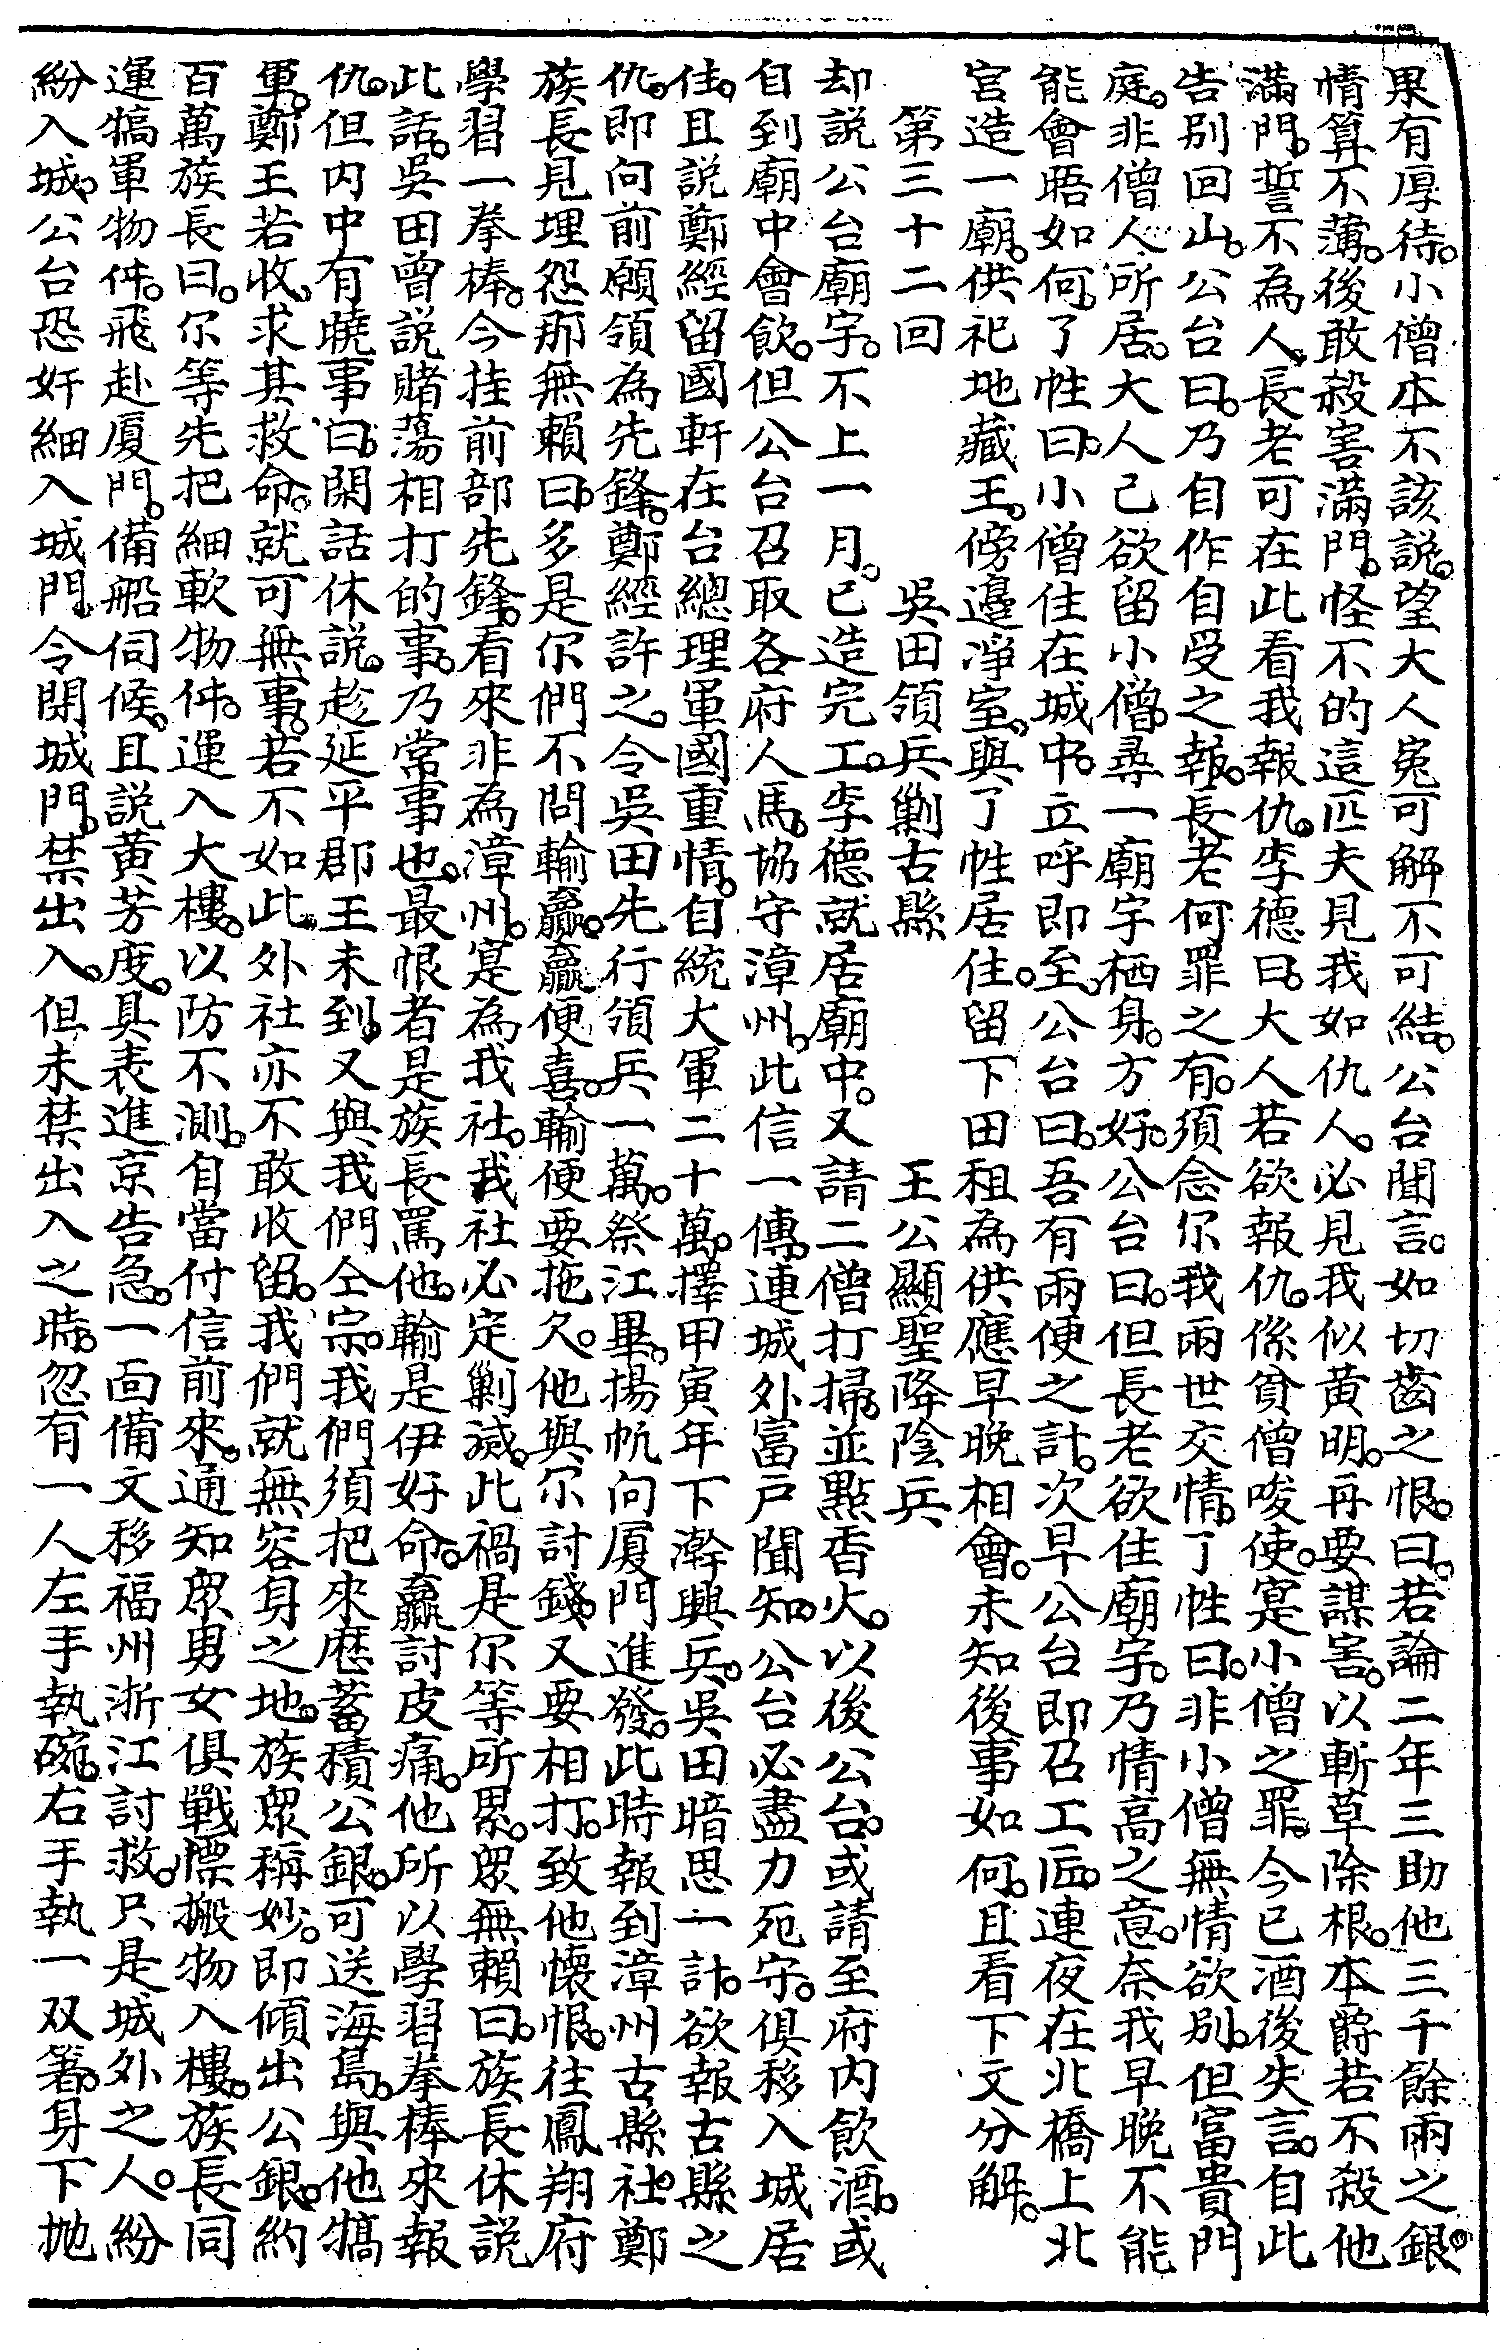 果有厚待。小僧本不該說。望大人寃可解不可結。公台聞言。如切齒之恨。曰。若論二年三助他三千餘兩之銀。
情算不薄。後敢殺害滿門。怪不的這匹夫見我如仇人。必見我似黃明。再要謀害。以斬草除根。本爵若不殺他
滿門。誓不為人。長老可在此看我報仇。李德曰。大人若欲報仇。係貧僧唆使。寔小僧之罪。今已酒後失言。自此
告别回山。公台曰。乃自作自受之報。長老何罪之有。須念尔我兩世交情。了性曰。非小僧無情欲别。但富貴門
庭。非僧人所居。大人己欲留小僧。尋一廟宇栖身。方好。公台曰。但長老欲住廟宇。乃情高之意。奈我早晚不能
能會晤如何。了性曰。小僧住在城中。立呼即至。公台曰。吾有兩便之計。次早公台即召工匠。連夜在北橋上北
宮造一廟。供祀地藏王。傍邉淨室。與了性居住。留下田租為供應早晚相會。未知後事如何。且看下文分解。
第三十二回　吳田領兵剿古縣　王公顯聖降陰兵
却說公台廟宇。不上一月。已造完工。李德就居廟中。又請二僧打掃。並點香火。以後公台。或請至府内飲酒。或
自到廟中會飲。但公台召取各府人馬。協守漳州。此信一傳。連城外富戶聞知。公台必盡力死守。俱移入城居
住。且說鄭經留國軒在台總理軍國重情。自統大軍二十萬。擇甲寅年下澣興兵。吳田暗思一計。欲報古縣之
仇。即向前願領為先鋒。鄭經許之。令吳田先行領兵一萬。祭江畢。揚帆向厦門進發。此時報到漳州古縣社。鄭
族長見埋怨那無賴曰。多是尔們不問輸贏。贏便喜。輸便要拖欠。他與尔討錢。又要相打。致他懷恨。往鳳翔府
學習一拳棒。今挂前部先鋒。看來非為漳州。寔為我社。我社必定剿滅。此禍是尔等所累。眾無賴曰。族長休說
此話。吳田曾説賭蕩相打的事。乃常事也。最恨者是族長罵他。輸是伊好命。贏討皮痛。他所以學習拳棒來報
仇。但内中有曉事曰。閑話休説。趁延平郡王未到。又與我們仝宗。我們須把來歷蓄積公銀。可送海島。與他犒
軍。鄭王若收。求其救命。就可無事。若不如此。外社亦不敢收留。我們就無容身之地。族眾稱妙。即傾出公銀。約
百萬族長曰。尔等先把細軟物件。運入大樓。以防不測。自當付信前來。通知眾男女俱戰慄搬物入樓。族長同
運犒軍物件。飛赴厦門。備船伺候。且說黃芳度。具表進京告急。一面備文移福州浙江討救。只是城外之人。紛
紛入城。公台恐奸細入城門。令閉城門。禁出入。但未禁出入之時。忽有一人左手執碗。右手執一双箸。身下抛